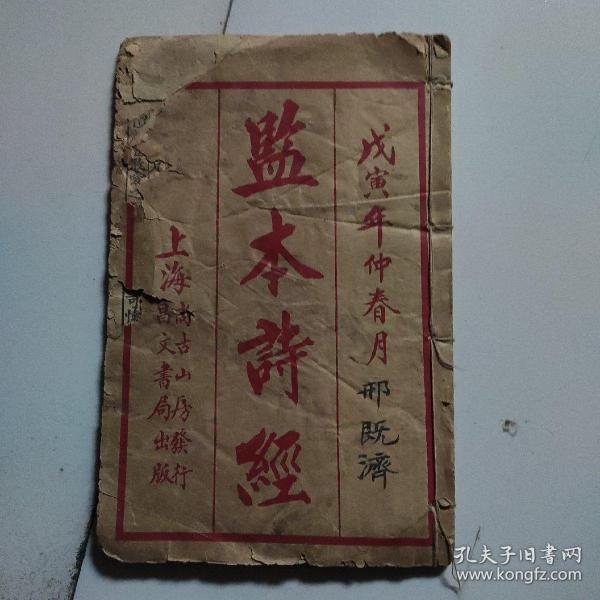 戊寅年仲春月
邢既濟
監本詩經
上海
尚古山房發行
昌文書局出版
孔夫子旧书网
www.kongfz.com